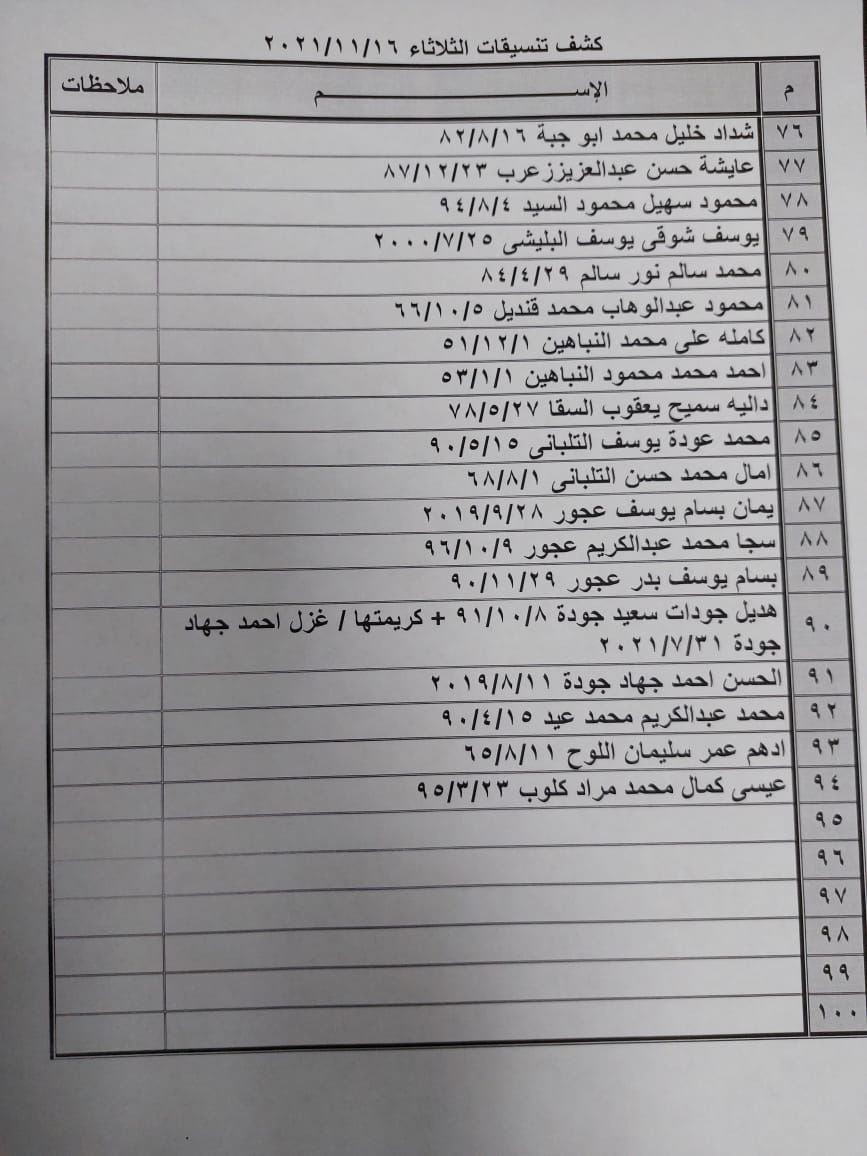 كشف تنسيقات الثلاثاء ٢٠٢١/١١/١٦
م الإســـــــــــــــــــــــــم ملاحظات
٧٦ شداد خليل محمد ابو جبة ٨٢/٨/١٦
٧٧ عايشة حسن عبدالعزيززعرب ٨٧/١٢/٢٣
٧٨ محمود سهيل محمود السيد ٩٤/٨/٤
٧٩ يوسف شوقى يوسف البليشى ٢٠٠٠/٧/٢٥
٨٠ محمد سالم نور سالم ٨٤/٤/٢٩
٨١ محمود عبدالوهاب محمد قنديل ٦٦/١٠/٥
٨٢ كامله على محمد النباهين ٥١/١٢/١
٨٣ احمد محمد محمود النباهين ٥٣/١/١
٨٤ داليه سميح يعقوب السقا ٧٨/٥/٢٧
٨٥ محمد عودة يوسف التلبانى ٩٠/٥/١٥
٨٦ امال محمد حسن التلبانى ٦٨/٨/١
٨٧ يمان بسام يوسف عجور ٢٠١٩/٩/٢٨
٨٨ سجا محمد عبدالكريم عجور ٩٦/١٠/٩
٨٩ بسام يوسف بدر عجور ٩٠/١١/٢٩
٩٠ هديل جودات سعيد جودة ٩١/١٠/٨ + كريمتها / غزل احمد جهاد
جودة ٢٠٢١/٧/٣١
٩١ الحسن احمد جهاد جودة ٢٠١٩/٨/١١
٩٢ محمد عبدالكريم محمد عيد ٩٠/٤/١٥
٩٣ ادهم عمر سليمان اللوح ٦٥/٨/١١
٩٤ عيسى كمال محمد مراد كلوب ٩٥/٣/٢٣
٩٥
٩٦
٩٧
٩٨
٩٩
١٠٠